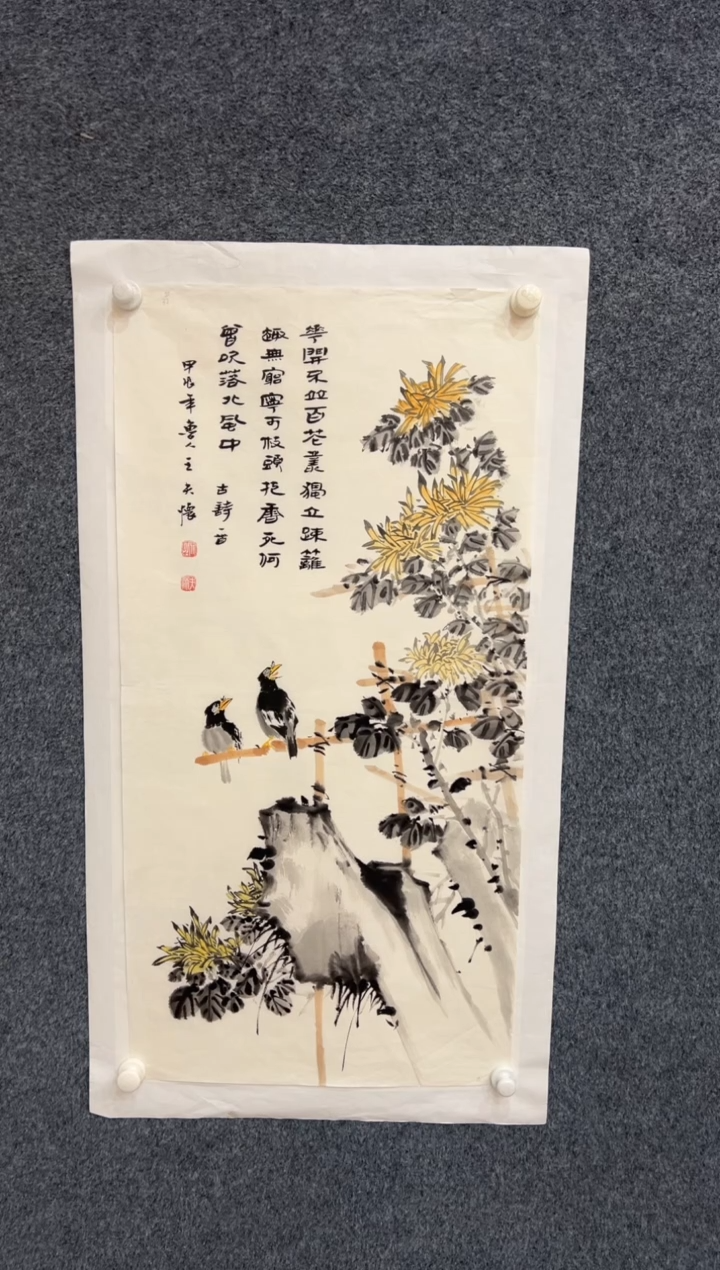 華開不竝百花叢獨立疎籬
趣無窮寧可枝頭抱香死何
曾吹落北風中 古詩一首
甲辰年魯人王